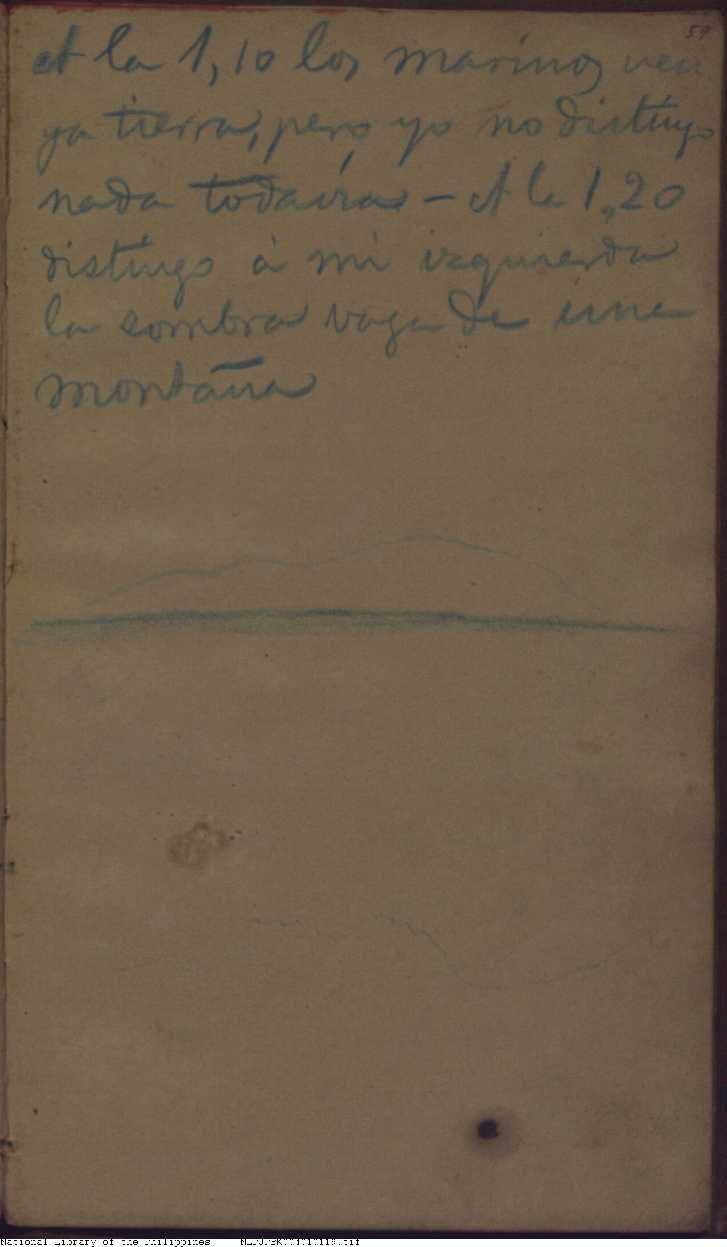 59
A la 1,10 los marinos ven
ya tierra, pero yo no distingo
nada todavía – A la 1,20
distingo á mi izquierda
la sombra vaga de una
montaña
National Library of the Philippines